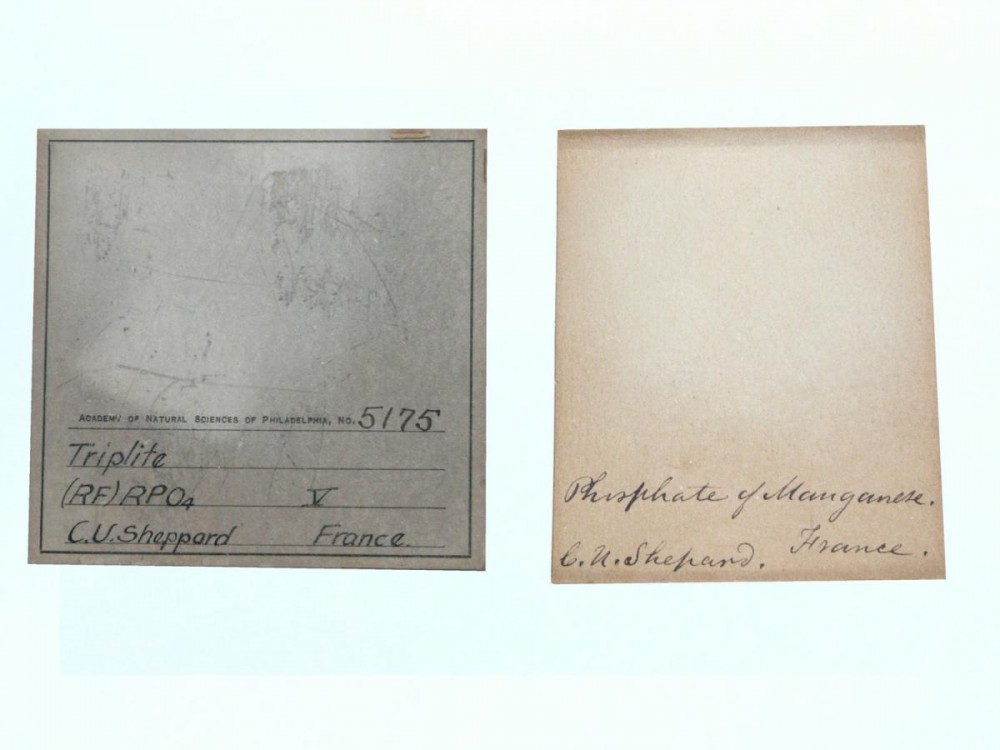 ACADEMY OF NATURAL SCIENCES OF PHILADELPHIA, NO. 5175
Triplite
(RF)RPO4 V
C.U.Sheppard France.
Phosphate of Manganese.
C. U. Shepard. France.